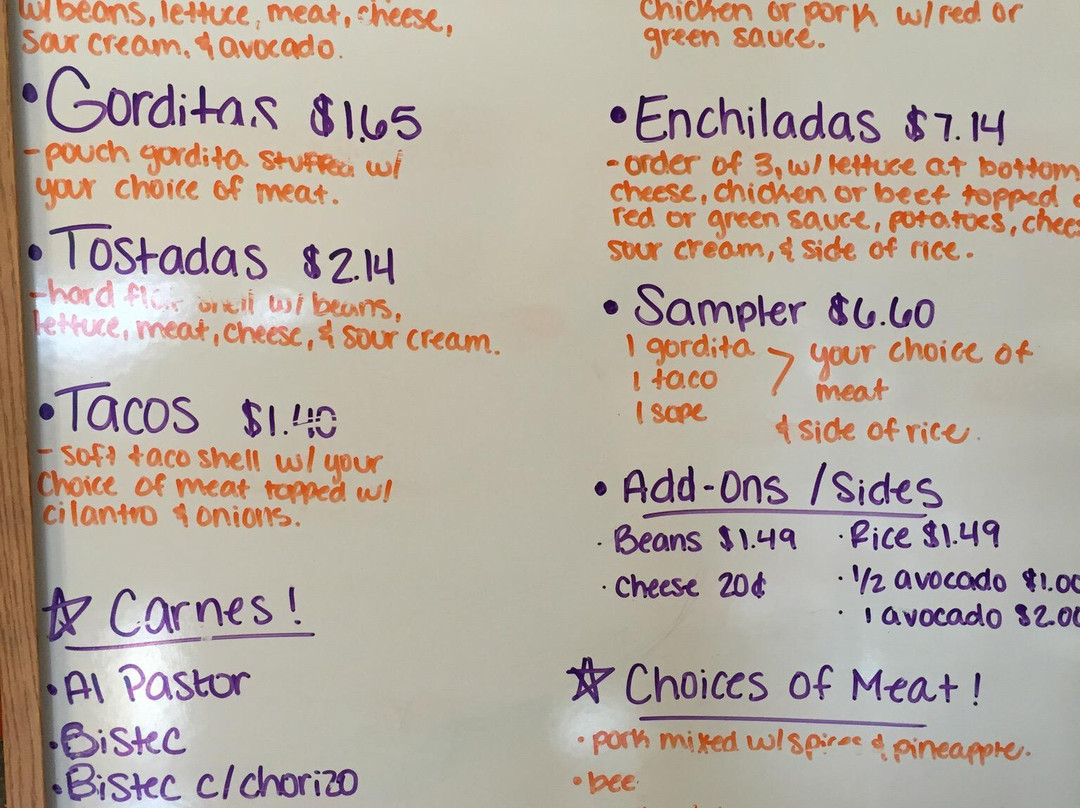 w/beans, lettuce, meat, cheese,
sour cream, & avocado.
• Gorditas $1.65
-pouch gordita stuffed w/
your choice of meat.
• Tostadas $2.14
-hard flat shell w/ beans,
lettuce, meat, cheese, & sour cream.
• Tacos $1.40
- soft taco shell w/ your
choice of meat topped w/
cilantro & onions.
☆ Carnes!
• Al Pastor
• Bistec
• Bistec c/chorizo
chicken or pork w/red or
green sauce.
• Enchiladas $7.14
-order of 3, w/lettuce at bottom
cheese, chicken or beef topped
red or green sauce, potatoes, chees
sour cream, & side of rice.
• Sampler $6.60
1 gordita > your choice of
1 taco meat
1 sope
& side of rice.
• Add-Ons / Sides
· Beans $1.49 · Rice $1.49
· Cheese 20¢ · 1/2 avocado $1.00
· 1 avocado $2.00
☆ Choices of Meat!
• pork mixed w/spices & pineapple.
• bee